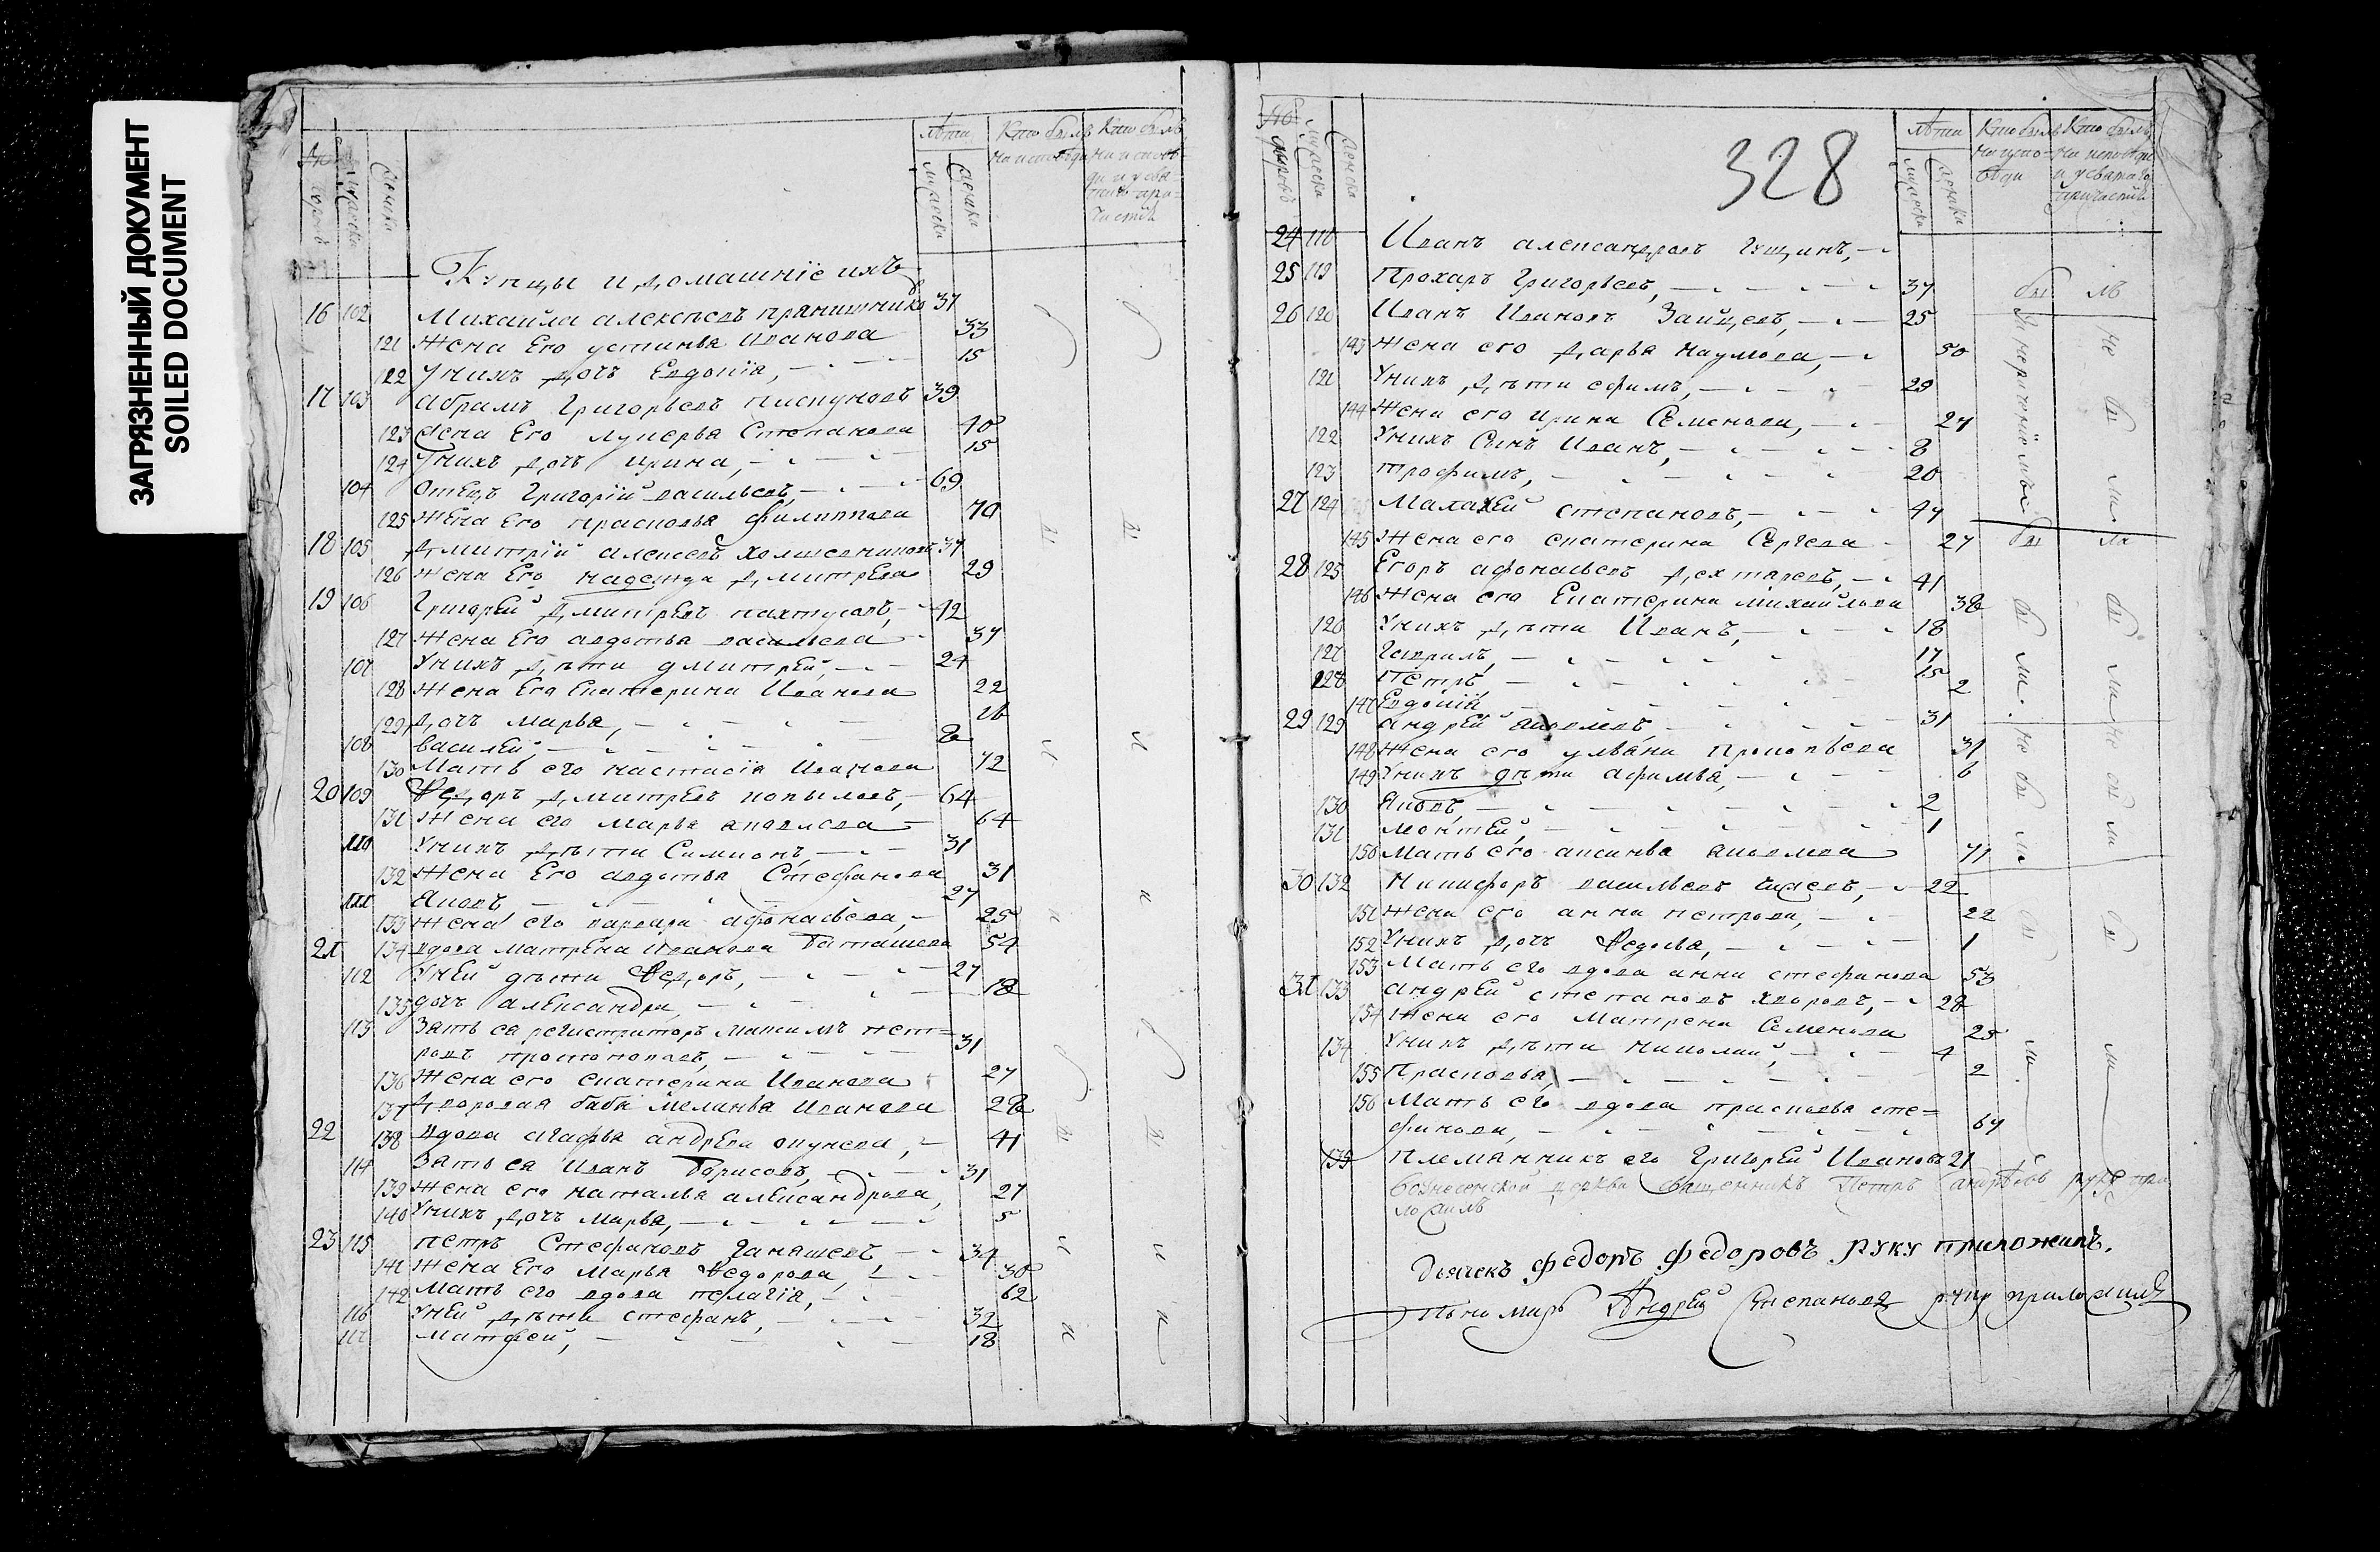 ЗАГРЯЗНЕННЫЙ ДОКУМЕНТ
SOILED DOCUMENT
лѣта Кто былъ Кто былъ
на исповѣди на исповѣ-
ди и у свя-
таго при-
частія
Купцы и домашнїе ихъ
16 102 Михайла алексѣевъ прянишниковъ 37
121 Жена Его устинья Иванова 33
122 Унихъ дочь Евдокїя, 15
17 103 абрамъ Григорьевъ пискуновъ 39
123 Жена Его лукерья Степанова 40
124 Унихъ дочь ирина, 15
104 Отецъ Григорїй васильевъ, 69
125 Жена Его прасковья филиппова 70
18 105 Дмитрїй алексеевъ 37
126 Жена Его надежда дмитрева 29
19 106 Григорей дмитревъ пахтусовъ, 42
127 Жена Его авдотья васильева 37
107 Унихъ дѣти дмитрей, 24
128 Жена Его Екатерина Иванова 22
129 дочь марья, 16
108 василей, 8
130 Мать его настасїя Иванова 72
20 109 Федоръ дмитревъ копыловъ, 64
131 Жена его марья яковлева 64
110 Унихъ дѣти Симионъ, 31
132 Жена Его авдотья Стефанова 31
111 Яковъ 27
133 Жена его варвара афонасьева, 25
21 134 вдова матрена Иванова Баташева 54
112 Уней дѣти Федоръ, 27
135 дочь александра, 18
113 Зять еа регистраторъ максимъ пет=
ровъ протопоповъ, 31
136 Жена его екатерина Иванова 27
137 Дворовая баба меланья Иванова 28
22 138 вдова агафья андрева окунева, 41
114 Зять еа Иванъ Борисовъ, 31
139 Жена его наталья александрова, 27
140 Унихъ дочь марья, 5
23 115 петръ Стефановъ Галашевъ, 34
141 Жена Его Марья Федорова, 30
142 Мать его вдова пелагїя, 62
116 Уней дѣти стефанъ, 32
117 матфей, 18
328
лѣта Кто былъ Кто былъ
на испо- на исповѣди
вѣди и у святаго
причастїя
24 118 Иванъ александровъ Гущинъ,
25 119 Прохаръ Григорьевъ, 37 бы лъ
26 120 Иванъ Ивановъ Зайцевъ, 25
143 Жена его дарья наумова, 50
121 Унихъ дѣти ефимъ, 29
144 Жена его ирина Семенова, 27
122 Унихъ Сынъ Иванъ, 8
123 трофимъ, 20
27 124 Малахей степановъ, 47
145 Жена его екатерина Сергева 27 бы ла
28 125 Егоръ афонасьевъ дехтяревъ, 41
146 Жена его Екатерина михайлова 38
126 Унихъ дѣти Иванъ, 18
127 Гаврилъ, 17
128 петръ 15
147 Евдокїя, 2
29 129 андрей яковлевъ, 31
148 Жена его ульяна Прокопьева 31
149 Унихъ дѣти афимья, 6
130 Яковъ, 2
131 моѵтей, 1
150 Мать его аксинья яковлева 71
30 132 Никифоръ васильевъ 22
151 Жена его анна петрова, 22
152 Унихъ дочь Федосья, 1
153 Мать его вдова анна стефанова 53
31 133 андрей степановъ хворовъ, 28
154 Жена его Матрена Семенова 25
134 Унихъ дѣти николай, 4
155 Прасковья, 2
156 Мать его вдова прасковья сте=
фанова, 67
135 Племянникъ его Григорей Ивановъ 21
Вознесенской церкви Священникъ Петръ андреевъ руку при
ложилъ
дьячекъ федоръ федоровъ руку приложилъ.
пономарь Андрей Степановъ руку приложилъ